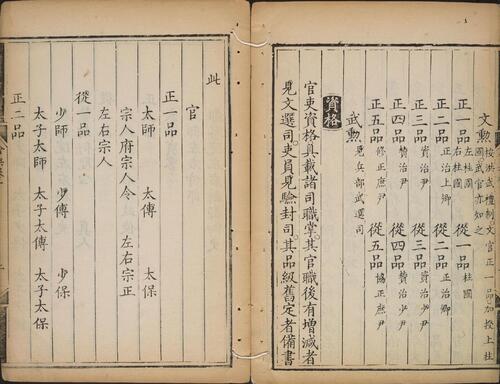 文勲 按洪武禮制文官正一品加授上柱國武官亦如之
正一品 左柱國 右柱國 從一品 柱國
正二品 正治上卿 從二品 正治卿
正三品 資治尹 從三品 資治少尹
正四品 賛治尹 從四品 賛治少尹
正五品 修正庶尹 從五品 協正庶尹
武勲 見兵部武選司
資格
官吏資格具載諸司職掌其官職後有增減者
見文選司吏員見驗封司其品級舊定者備書
此
官
正一品
太師 太傅 太保
宗人府宗人令 左右宗正
左右宗人
從一品
少師 少傅 少保
太子太師 太子太傅 太子太保
正二品